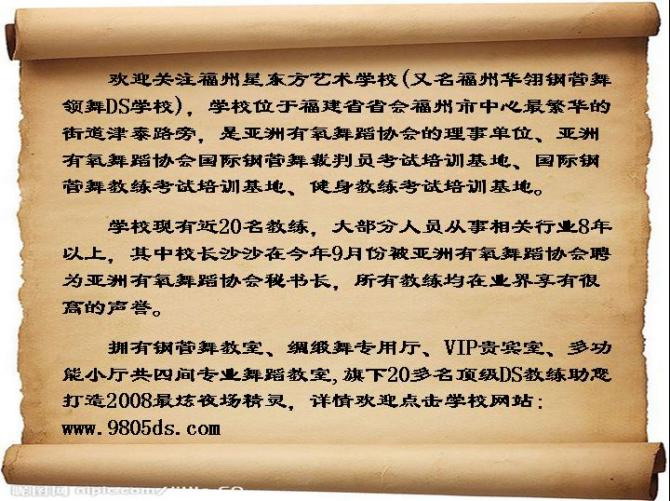 欢迎关注福州星东方艺术学校(又名福州华翎钢管舞
领舞DS学校)，学校位于福建省省会福州市中心最繁华的
街道津泰路旁，是亚洲有氧舞蹈协会的理事单位、亚洲
有氧舞蹈协会国际钢管舞裁判员考试培训基地、国际钢
管舞教练考试培训基地、健身教练考试培训基地。
学校现有近20名教练，大部分人员从事相关行业8年
以上，其中校长沙沙在今年9月份被亚洲有氧舞蹈协会聘
为亚洲有氧舞蹈协会秘书长，所有教练均在业界享有很
高的声誉。
拥有钢管舞教室、绸缎舞专用厅、VIP贵宾室、多功
能小厅共四间专业舞蹈教室,旗下20多名顶级DS教练助您
打造2008最炫夜场精灵，详情欢迎点击学校网站:
www.9805ds.com
昵图网 nipic.com